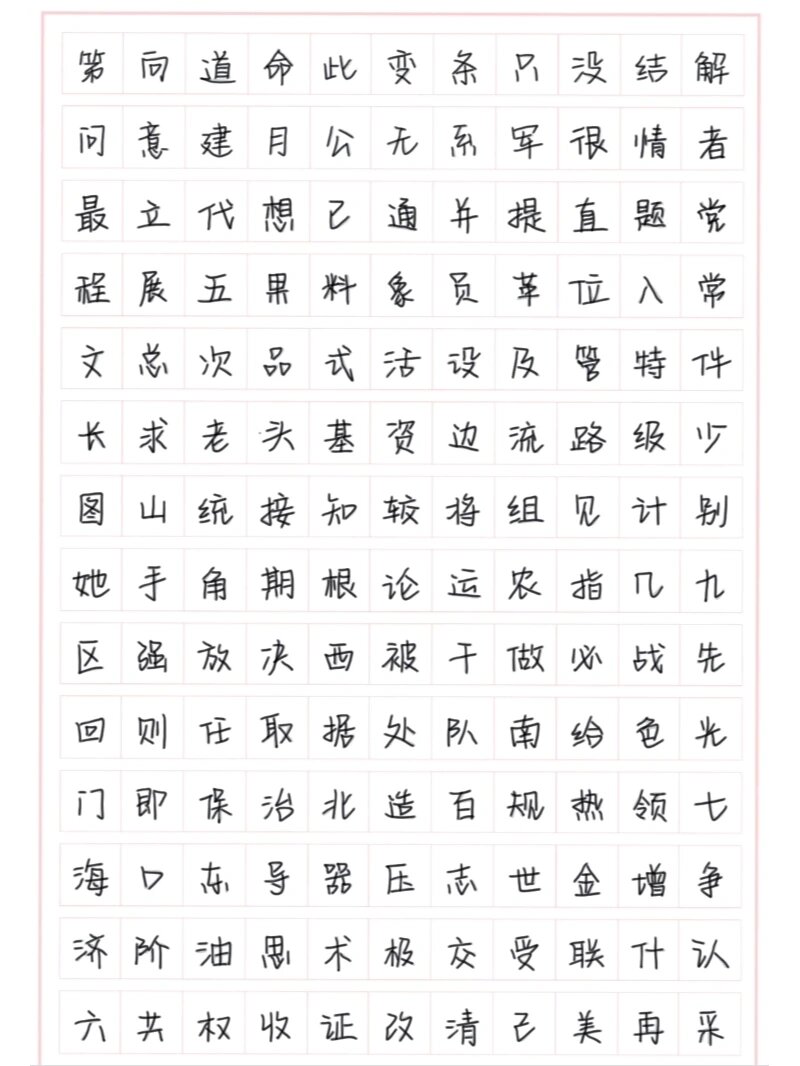 第向道命此变条只没结解
问意建月公无系军很情者
最立代想已通并提直题党
程展五果料象员革位入常
文总次品式活设及管特件
长求老头基资边流路级少
图山统接知较将组见计别
她手角期根论运农指几九
区强放决西被干做必战先
回则任取据处队南给色光
门即保治北造百规热领七
海口东导器压志世金增争
济阶油思术极交受联什认
六共权收证改清己美再采